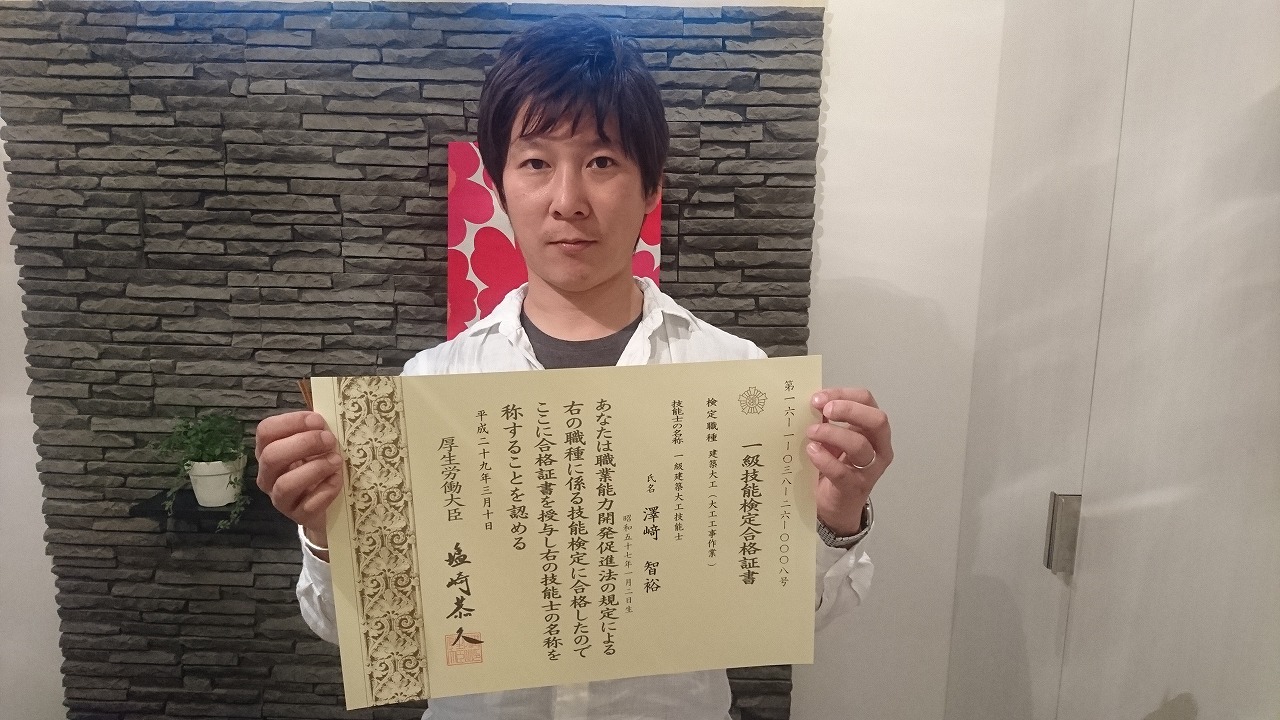 第一六ー一ー〇三八ー二六ー〇〇〇八号
一級技能検定合格証書
検定職種 建築大工（大工工事作業）
技能士の名称 一級建築大工技能士
氏名 澤﨑 智裕
昭和五十七年一月二日生
あなたは職業能力開発促進法の規定による
右の職種に係る技能検定に合格したので
ここに合格証書を授与し右の技能士の名称を
称することを認める
平成二十九年三月十日
厚生労働大臣 塩崎恭久